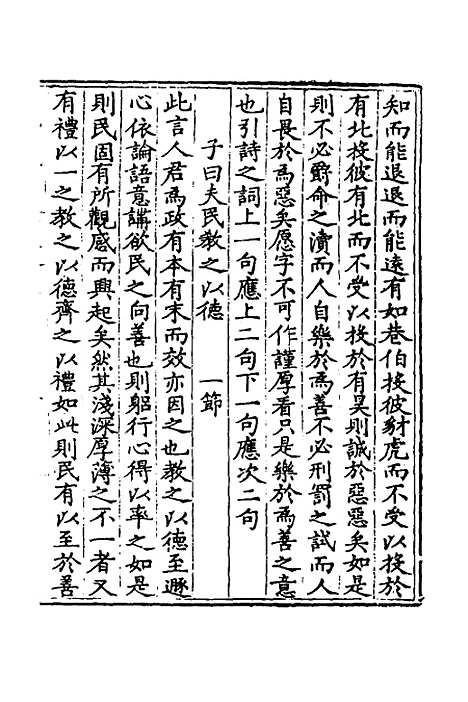 知而能退退而能遠有如巷伯投彼豺虎而不受以投於
有北投彼有北而不受以投於有昊則誠於惡惡矣如是
則不必爵命之瀆而人自樂於爲善不必刑罰之試而人
自畏於爲惡矣愿字不可作謹厚看只是樂於爲善之意
也引詩之詞上一句應上二句下一句應次二句
子曰夫民教之以德 一節
此言人君爲政有本有末而效亦因之也教之以德至遯
心依論語意講欲民之向善也則躬行心得以率之如是
則民固有所觀感而興起矣然其淺深厚薄之不一者又
有禮以一之教之以德齊之以禮如此則民有以至於善